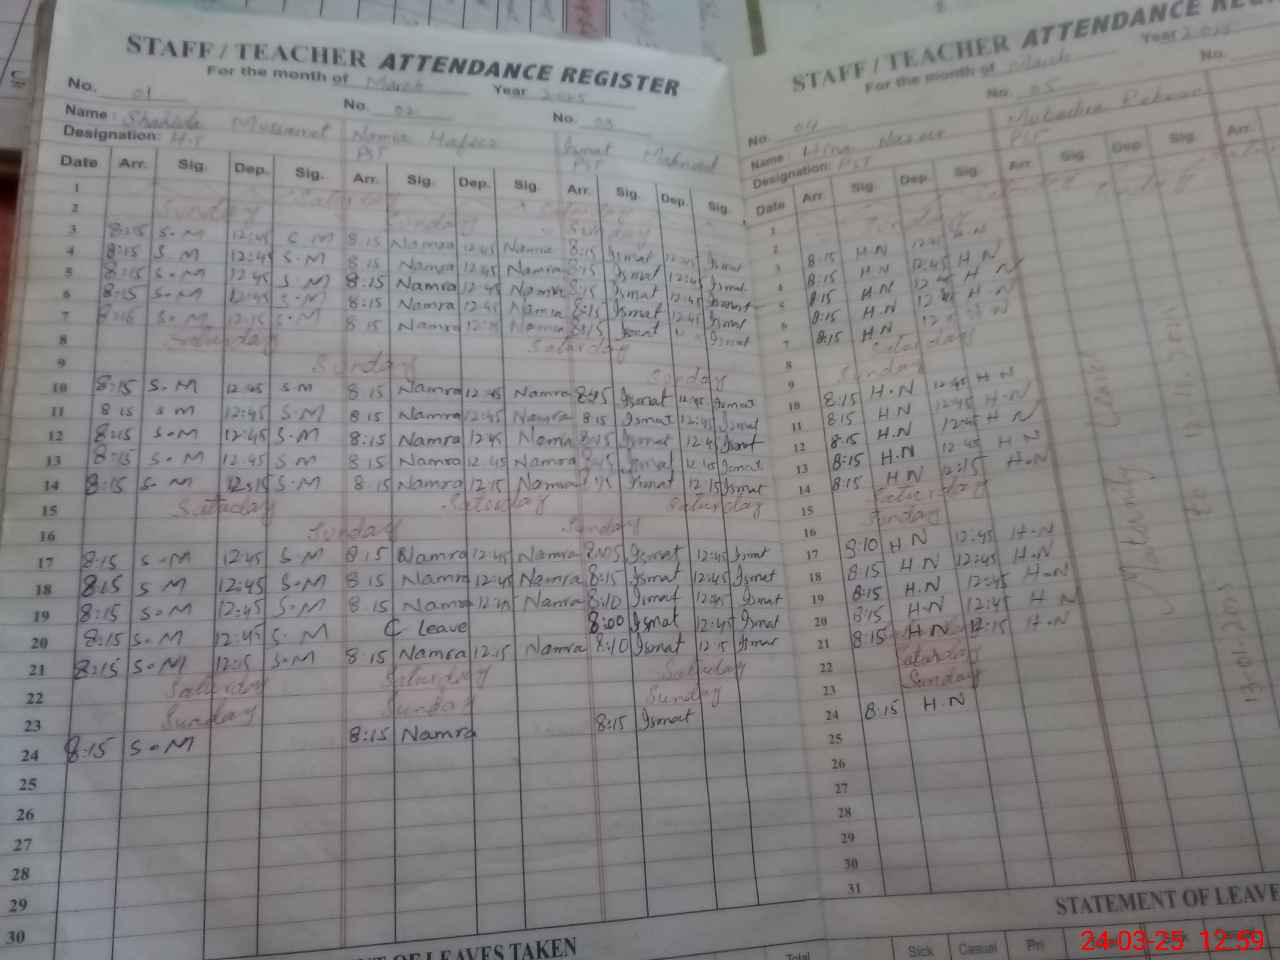 STAFF / TEACHER ATTENDANCE REGISTER
For the month of March Year 2025
No. 01 No. 02 No. 03
Name: Shahida Musarrat Namra Hafeez Ismat Mahmood
Designation: PST PST
Date Arr. Sig. Dep. Sig. Arr. Sig. Dep. Sig. Arr. Sig. Dep. Sig.
1 Saturday
2 Sunday Sunday Sunday
3 8:15 S.M 12:45 S.M 8:15 Namra 12:45 Namra 8:15 Ismat 12:45 Ismat
4 8:15 S.M 12:45 S.M 8:15 Namra 12:45 Namra 8:15 Ismat 12:45 Ismat
5 8:15 S.M 12:45 S.M 8:15 Namra 12:45 Namra 8:15 Ismat 12:45 Ismat
6 8:15 S.M 12:45 S.M 8:15 Namra 12:45 Namra 8:15 Ismat 12:45 Ismat
7 8:15 S.M 12:15 S.M 8:15 Namra Namra 8:15 Ismat Ismat
8 Saturday Saturday
9 Sunday Sunday
10 8:15 S.M 12:45 S.M 8:15 Namra 12:45 Namra 8:15 Ismat 12:45 Ismat
11 8:15 S.M 12:45 S.M 8:15 Namra 12:45 Namra 8:15 Ismat 12:45 Ismat
12 8:15 S.M 12:45 S.M 8:15 Namra 12:45 Namra 8:15 Ismat 12:45 Ismat
13 8:15 S.M 12:45 S.M 8:15 Namra 12:45 Namra Ismat 12:45 Ismat
14 8:15 S.M 12:15 S.M 8:15 Namra 12:15 Namra Ismat 12:15 Ismat
15 Saturday Saturday Saturday
16 Sunday Sunday
17 8:15 S.M 12:45 S.M 8:15 Namra 12:45 Namra 8:05 Ismat 12:45 Ismat
18 8:15 S.M 12:45 S.M 8:15 Namra 12:45 Namra 8:15 Ismat 12:45 Ismat
19 8:15 S.M 12:45 S.M 8:15 Namra 12:45 Namra 8:10 Ismat 12:45 Ismat
20 8:15 S.M 12:45 S.M C leave 8:00 Ismat 12:45 Ismat
21 8:15 S.M 12:15 S.M 8:15 Namra 12:15 Namra 8:10 Ismat 12:15 Ismat
22 Saturday Saturday Saturday
23 Sunday Sunday Sunday
24 8:15 S.M 8:15 Namra 8:15 Ismat
25
26
27
28
29
30
OF LEAVES TAKEN
STAFF / TEACHER ATTENDANCE REG
For the month of March Year 2025
No. 04 No. 05 No.
Name: Hina
Designation: PST PST
Date Arr. Sig. Dep. Sig. Arr. Sig. Dep. Sig. Arr.
1
2 Sunday
3 8:15 H.N 12:45 H.N
4 8:15 H.N 12:45 H.N
5 8:15 H.N 12:45 H.N
6 8:15 H.N 12:45 H.N
7 8:15 H.N H.N
8 Saturday
9 Sunday
10 8:15 H.N 12:45 H.N
11 8:15 H.N 12:45 H.N
12 8:15 H.N 12:45 H.N
13 8:15 H.N 12:45 H.N
14 8:15 H.N 12:15 H.N
15 Saturday
16 Sunday
17 8:10 H.N 12:45 H.N
18 8:15 H.N 12:45 H.N
19 8:15 H.N 12:45 H.N
20 8:15 H.N 12:45 H.N
21 8:15 H.N 12:15 H.N
22 Saturday
23 Sunday
24 8:15 H.N
25
26
27
28
29
30
31
Maternity
STATEMENT OF LEAVE
Total Sick Casual Pri
24-03-25 12:59